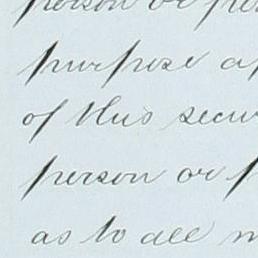 person or per
purpose a
of this secur
person or p
as to all m